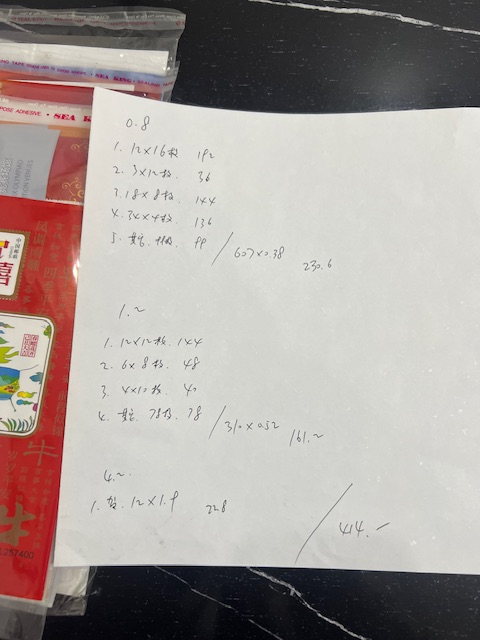 SEA KING
POSE ADHESIVE • SEA K
中国邮政
禧
牛
257400
0.8
1. 12×16枚 192
2. 3×12枚. 36
3. 18×8枚. 144
4. 34×4枚. 136
5. 99
607×0.38
230.6
1.2
1. 12×12枚. 144
2. 6×8枚. 48
3. 4×10枚. 40
4. 78枚. 78
310×0.52
161.2
4.2
1. 12×1.9 22.8
414.-